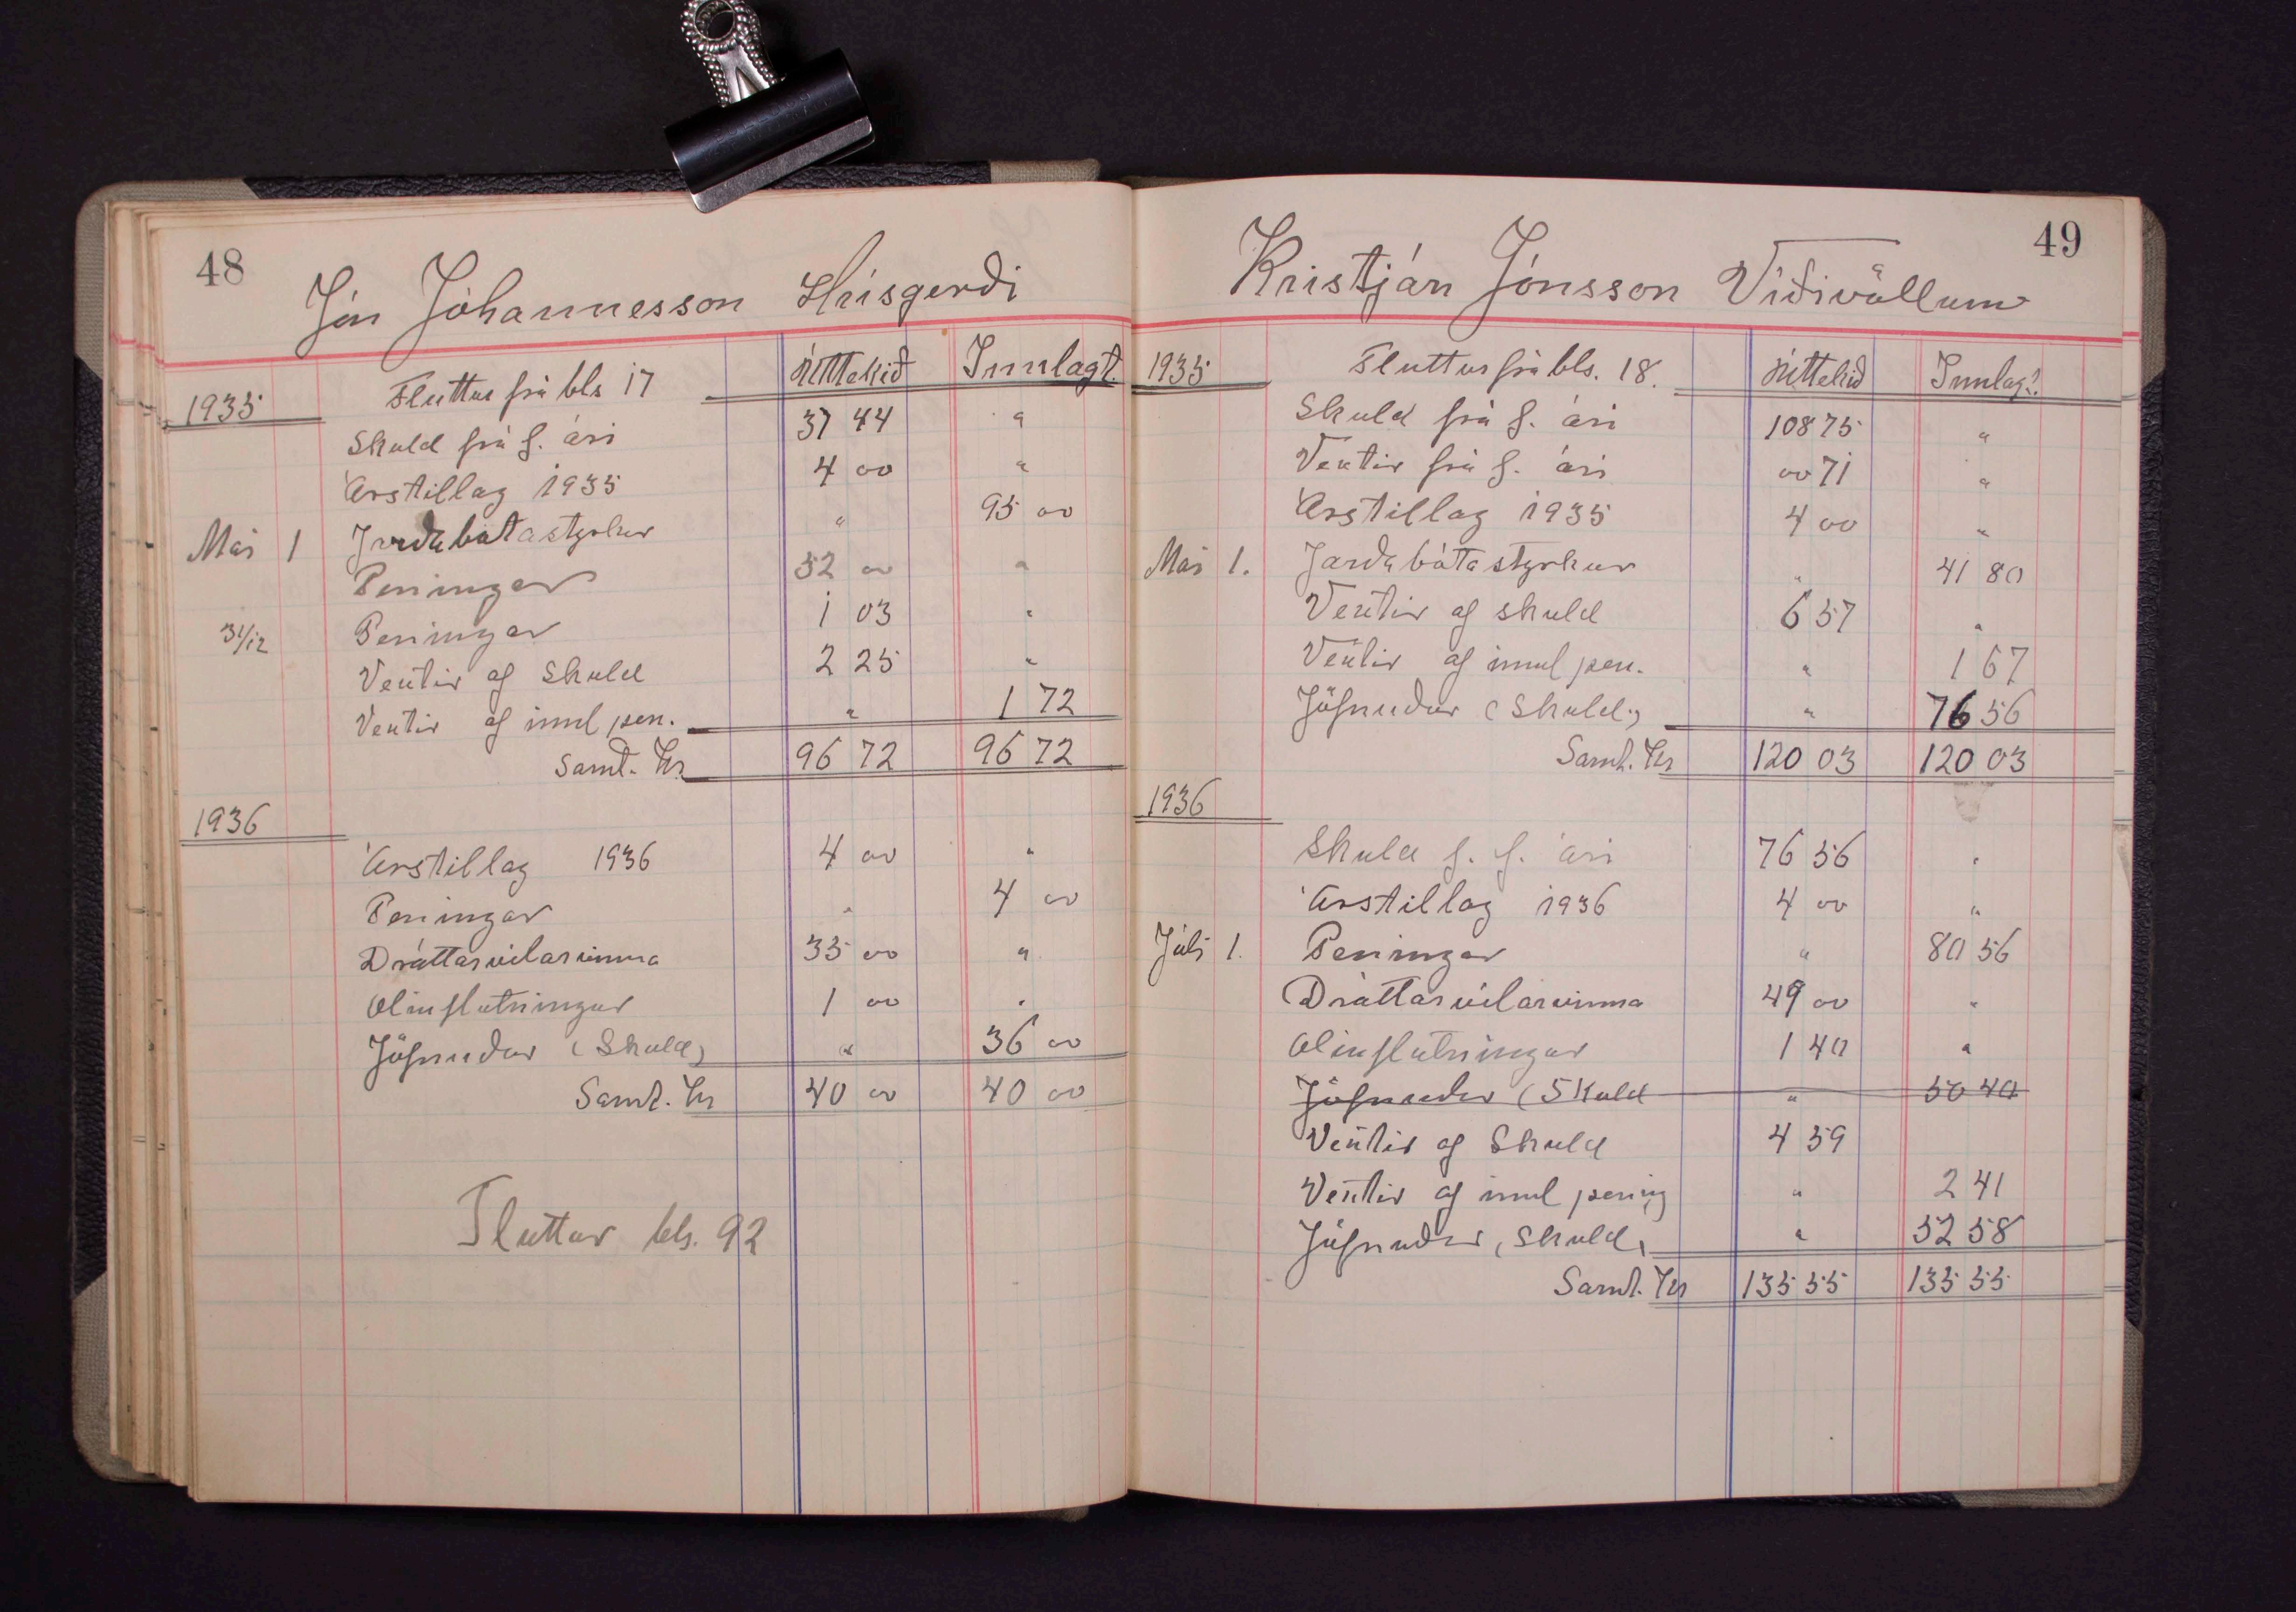 48
Jón Jóhannesson Hrísgerði
1935 Fluttur frá bls 17 Úttekið Innlagt.
Skuld frá f. ári 37 44 "
Árstillag 1935 4 00 "
Maí 1 Jarðabótastyrkur " 95 00
Peningar 52 00 "
31/12 Peningar 1 03 "
Vextir af skuld 2 25 "
Vextir af innl pen. " 1 72
Samt. Kr 96 72 96 72
1936
Árstillag 1936 4 00 "
Peningar " 4 00
Dráttarvélarvinna 35 00 "
Olíuflutningur 1 00 "
Jöfnuður (Skuld) " 36 00
Samt. Kr 40 00 40 00
Fluttur bls. 92
49
Kristján Jónsson Víðivöllum
1935 Fluttur frá bls. 18. Úttekið Innlagt.
Skuld frá f. ári 108 75 "
Vextir frá f. ári 00 71 "
Árstillag 1935 4 00 "
Maí 1. Jarðabótastyrkur " 41 80
Vextir af skuld 6 57 "
Vextir af innl pen. " 1 67
Jöfnuður (Skuld) " 76 56
Samt. Kr 120 03 120 03
1936
Skuld f. f. ári 76 56 "
Árstillag 1936 4 00 "
Júlí 1. Peningar " 80 56
Dráttarvélarvinna 49 00 "
Olíuflutningur 1 40 "
Jöfnuður (Skuld " 50 40
Vextir af Skuld 4 59
Vextir af innl pening " 2 41
Jöfnuður (Skuld) " 52 58
Samt. Kr 135 55 135 55